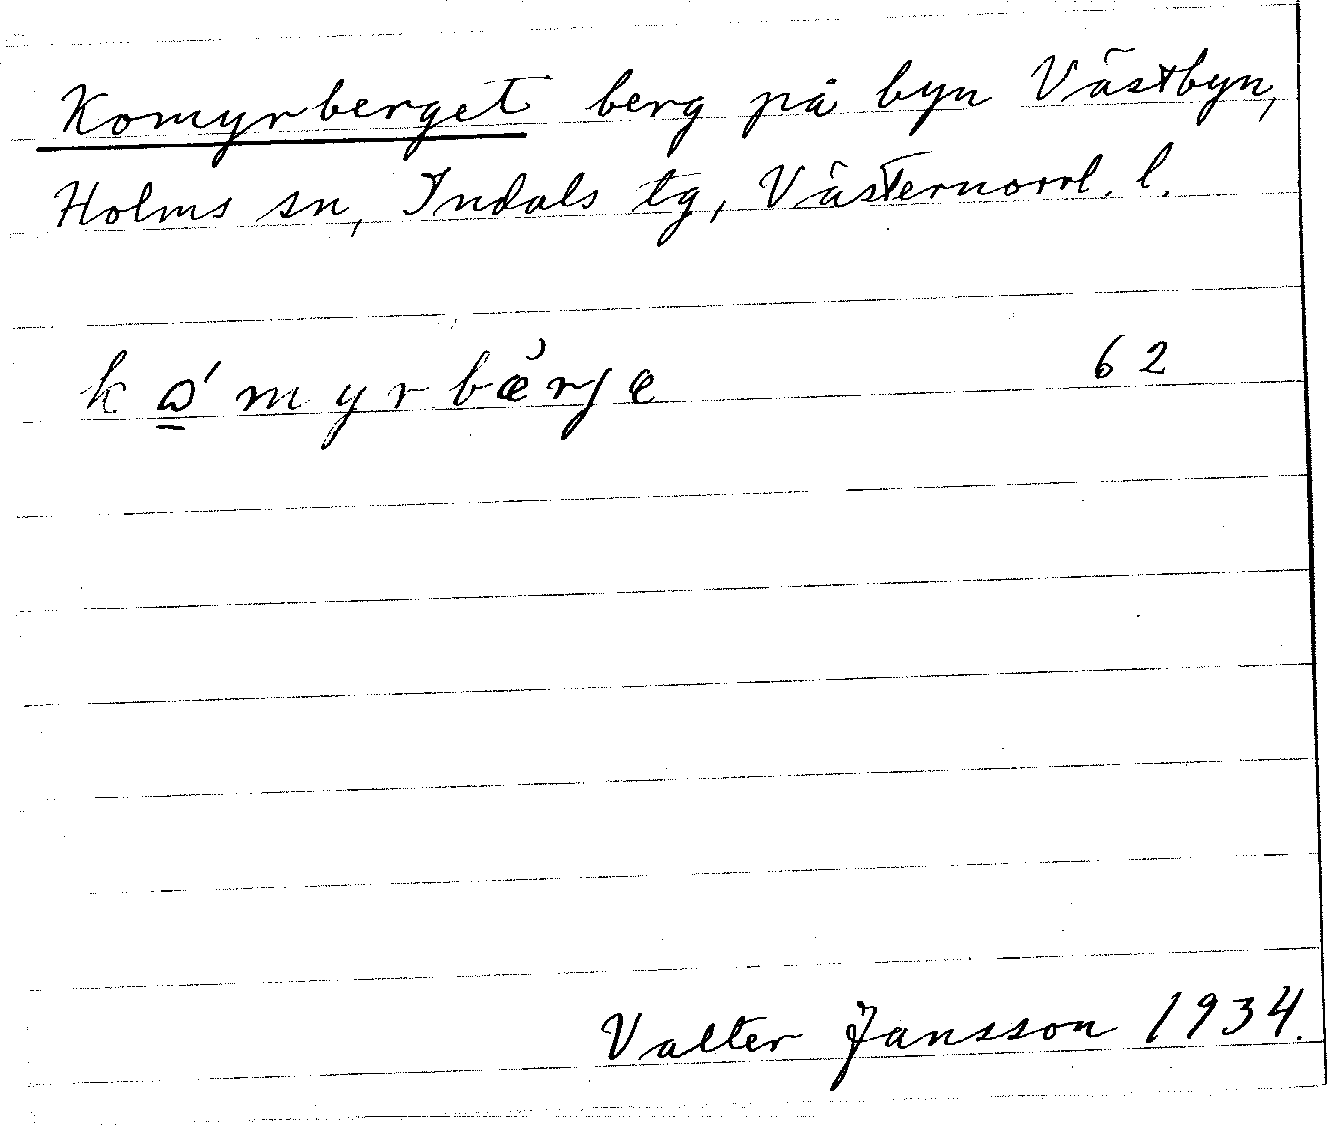 Komyrberget berg på byn Västbyn,
Holms sn, Indals tg, Västernorrl. l.
kώ̲myrbæ̀rje 62
Valter Jansson 1934.